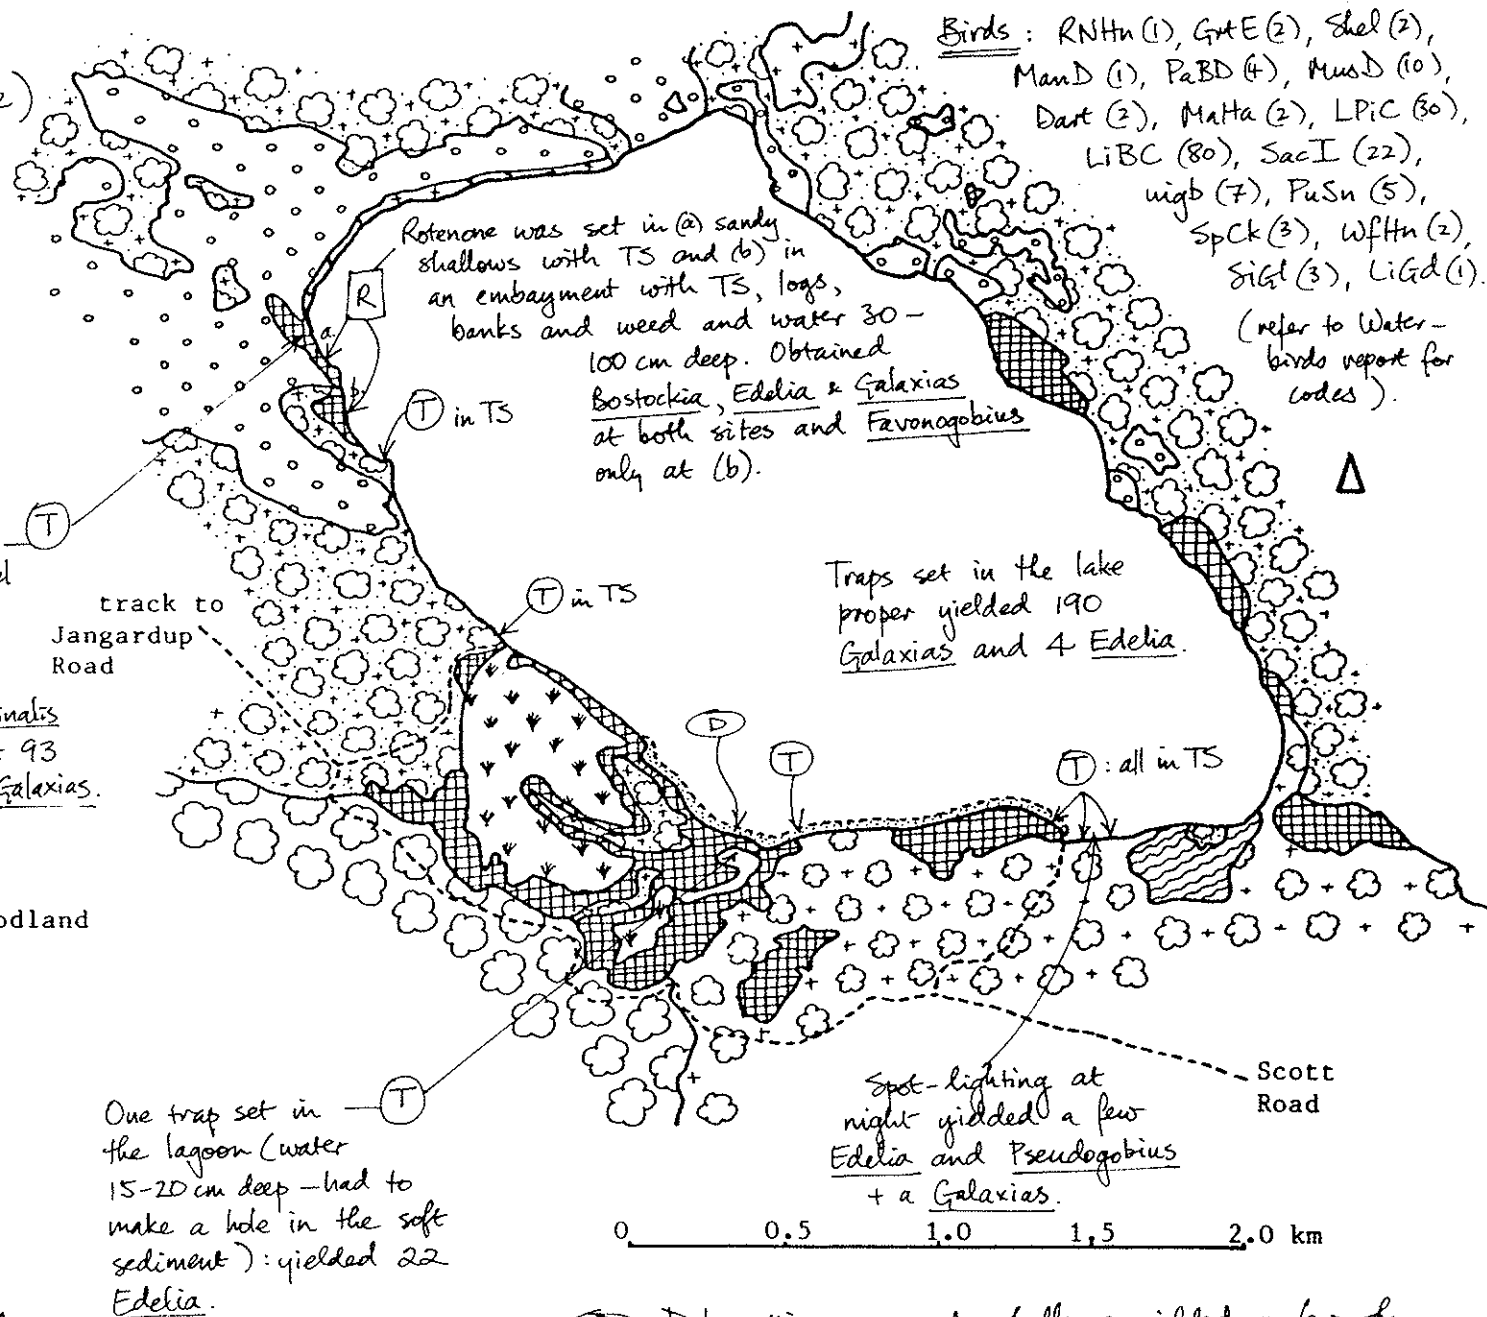 Birds : RNHn (1), GrtE (2), Shel (2),
ManD (1), PaBD (4), MusD (10),
Dart (2), MaHa (2), LPiC (30),
LiBC (80), SacI (22),
nigb (7), PuSn (5),
SpCk (3), WfHn (2),
SiGl (3), LiGd (1).
(refer to Water-
birds report for
codes).
2)
Rotenone was set in (a) sandy
shallows with TS and (b) in
an embayment with TS, logs,
banks and weed and water 30 -
100 cm deep. Obtained
Bostockia, Edelia & Galaxias
at both sites and Favonogobius
only at (b).
R
a
b
T in TS
T
T in TS
track to
Jangardup
Road
Traps set in the lake
proper yielded 190
Galaxias and 4 Edelia.
inalis
93
Galaxias.
D
T
T : all in TS
odland
One trap set in T
the lagoon (water
15-20 cm deep - had to
make a hole in the soft
sediment) : yielded 22
Edelia.
Spot-lighting at
night yielded a few
Edelia and Pseudogobius
+ a Galaxias.
Scott
Road
0 0.5 1.0 1.5 2.0 km